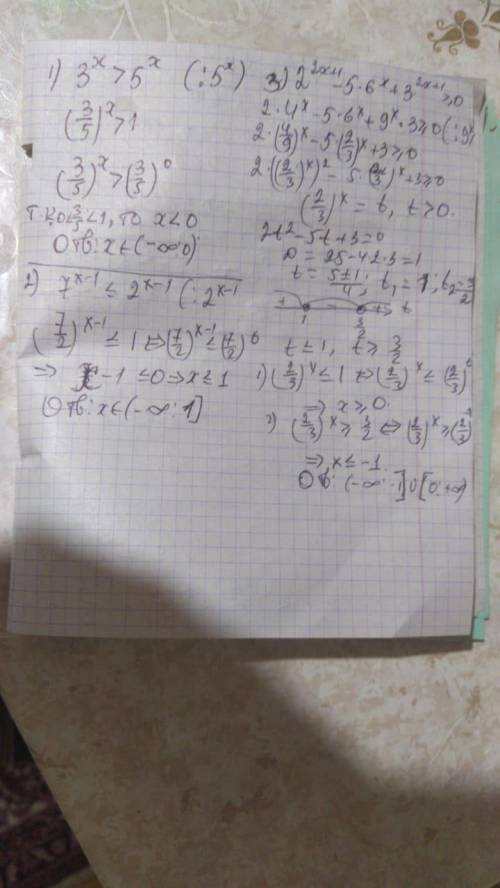 1) 3^x > 5^x (: 5^x)
(3/5)^x > 1
(3/5)^x > (3/5)^0
т.к. 0< 3/5 <1, то x<0
Отв: x∈(-∞;0)
2) 7^(x-1) ≤ 2^(x-1) (: 2^(x-1)
(7/2)^(x-1) ≤ 1 ⇔ (7/2)^(x-1) ≤ (7/2)^0
⇒ x-1 ≤0 ⇒ x ≤ 1
Отв: x∈(-∞; 1]
3) 2^(2x+1) - 5·6^x + 3^(2x+1) ≥ 0
2·4^x - 5·6^x + 9^x·3 ≥ 0 (: 9^x)
2·(4/9)^x - 5(2/3)^x + 3 ≥ 0
2·((2/3)^x)^2 - 5·(2/3)^x + 3 ≥ 0
(2/3)^x = t, t>0.
2t^2 - 5t + 3 = 0
D = 25 - 4·2·3 = 1
t = (5±1)/4; t1 = 1; t2 = 3/2
+ - + t
1 3/2
t ≤ 1, t ≥ 3/2
1) (2/3)^x ≤ 1 ⇔ (2/3)^x ≤ (2/3)^0
⇒ x ≥ 0.
2) (2/3)^x ≥ 3/2 ⇔ (2/3)^x ≥ (2/3)^-1
⇒ x ≤ -1.
Отв: (-∞; -1]∪[0; +∞)